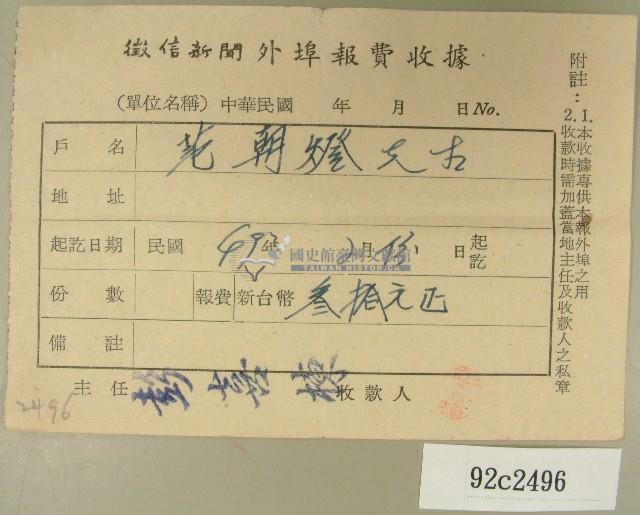 徵信新聞外埠報費收據
(單位名稱)中華民國 年 月 日No.
戶名 范朝燈先生
地址
起訖日期 民國 49年2月份 日起訖
份數 報費 新台幣 叁拾元正
備註
主任 收款人
附註：
1.本收據專供本報外埠之用
2.收款時需加蓋當地主任及收款人之私章
國史館臺灣文獻館
TAIWAN HISTORICA
2496
92c2496